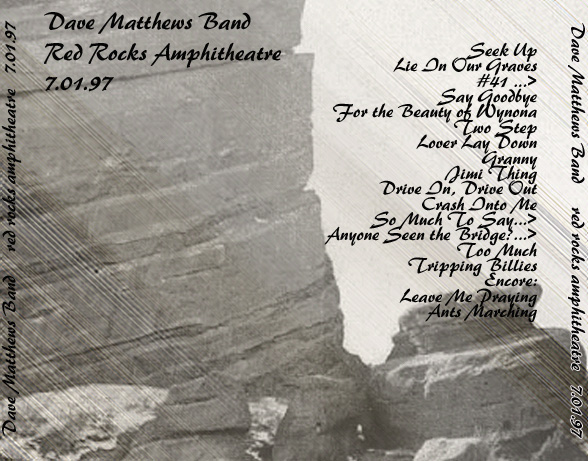 Dave Matthews Band
Red Rocks Amphitheatre
7.01.97
Seek Up
Lie In Our Graves
#41 ...>
Say Goodbye
For the Beauty of Wynona
Two Step
Lover Lay Down
Granny
Jimi Thing
Drive In, Drive Out
Crash Into Me
So Much To Say...>
Anyone Seen the Bridge?...>
Too Much
Tripping Billies
Encore:
Leave Me Praying
Ants Marching
Dave Matthews Band red rocks amphitheatre 7.01.97
Dave Matthews Band red rocks amphitheatre 7.01.97